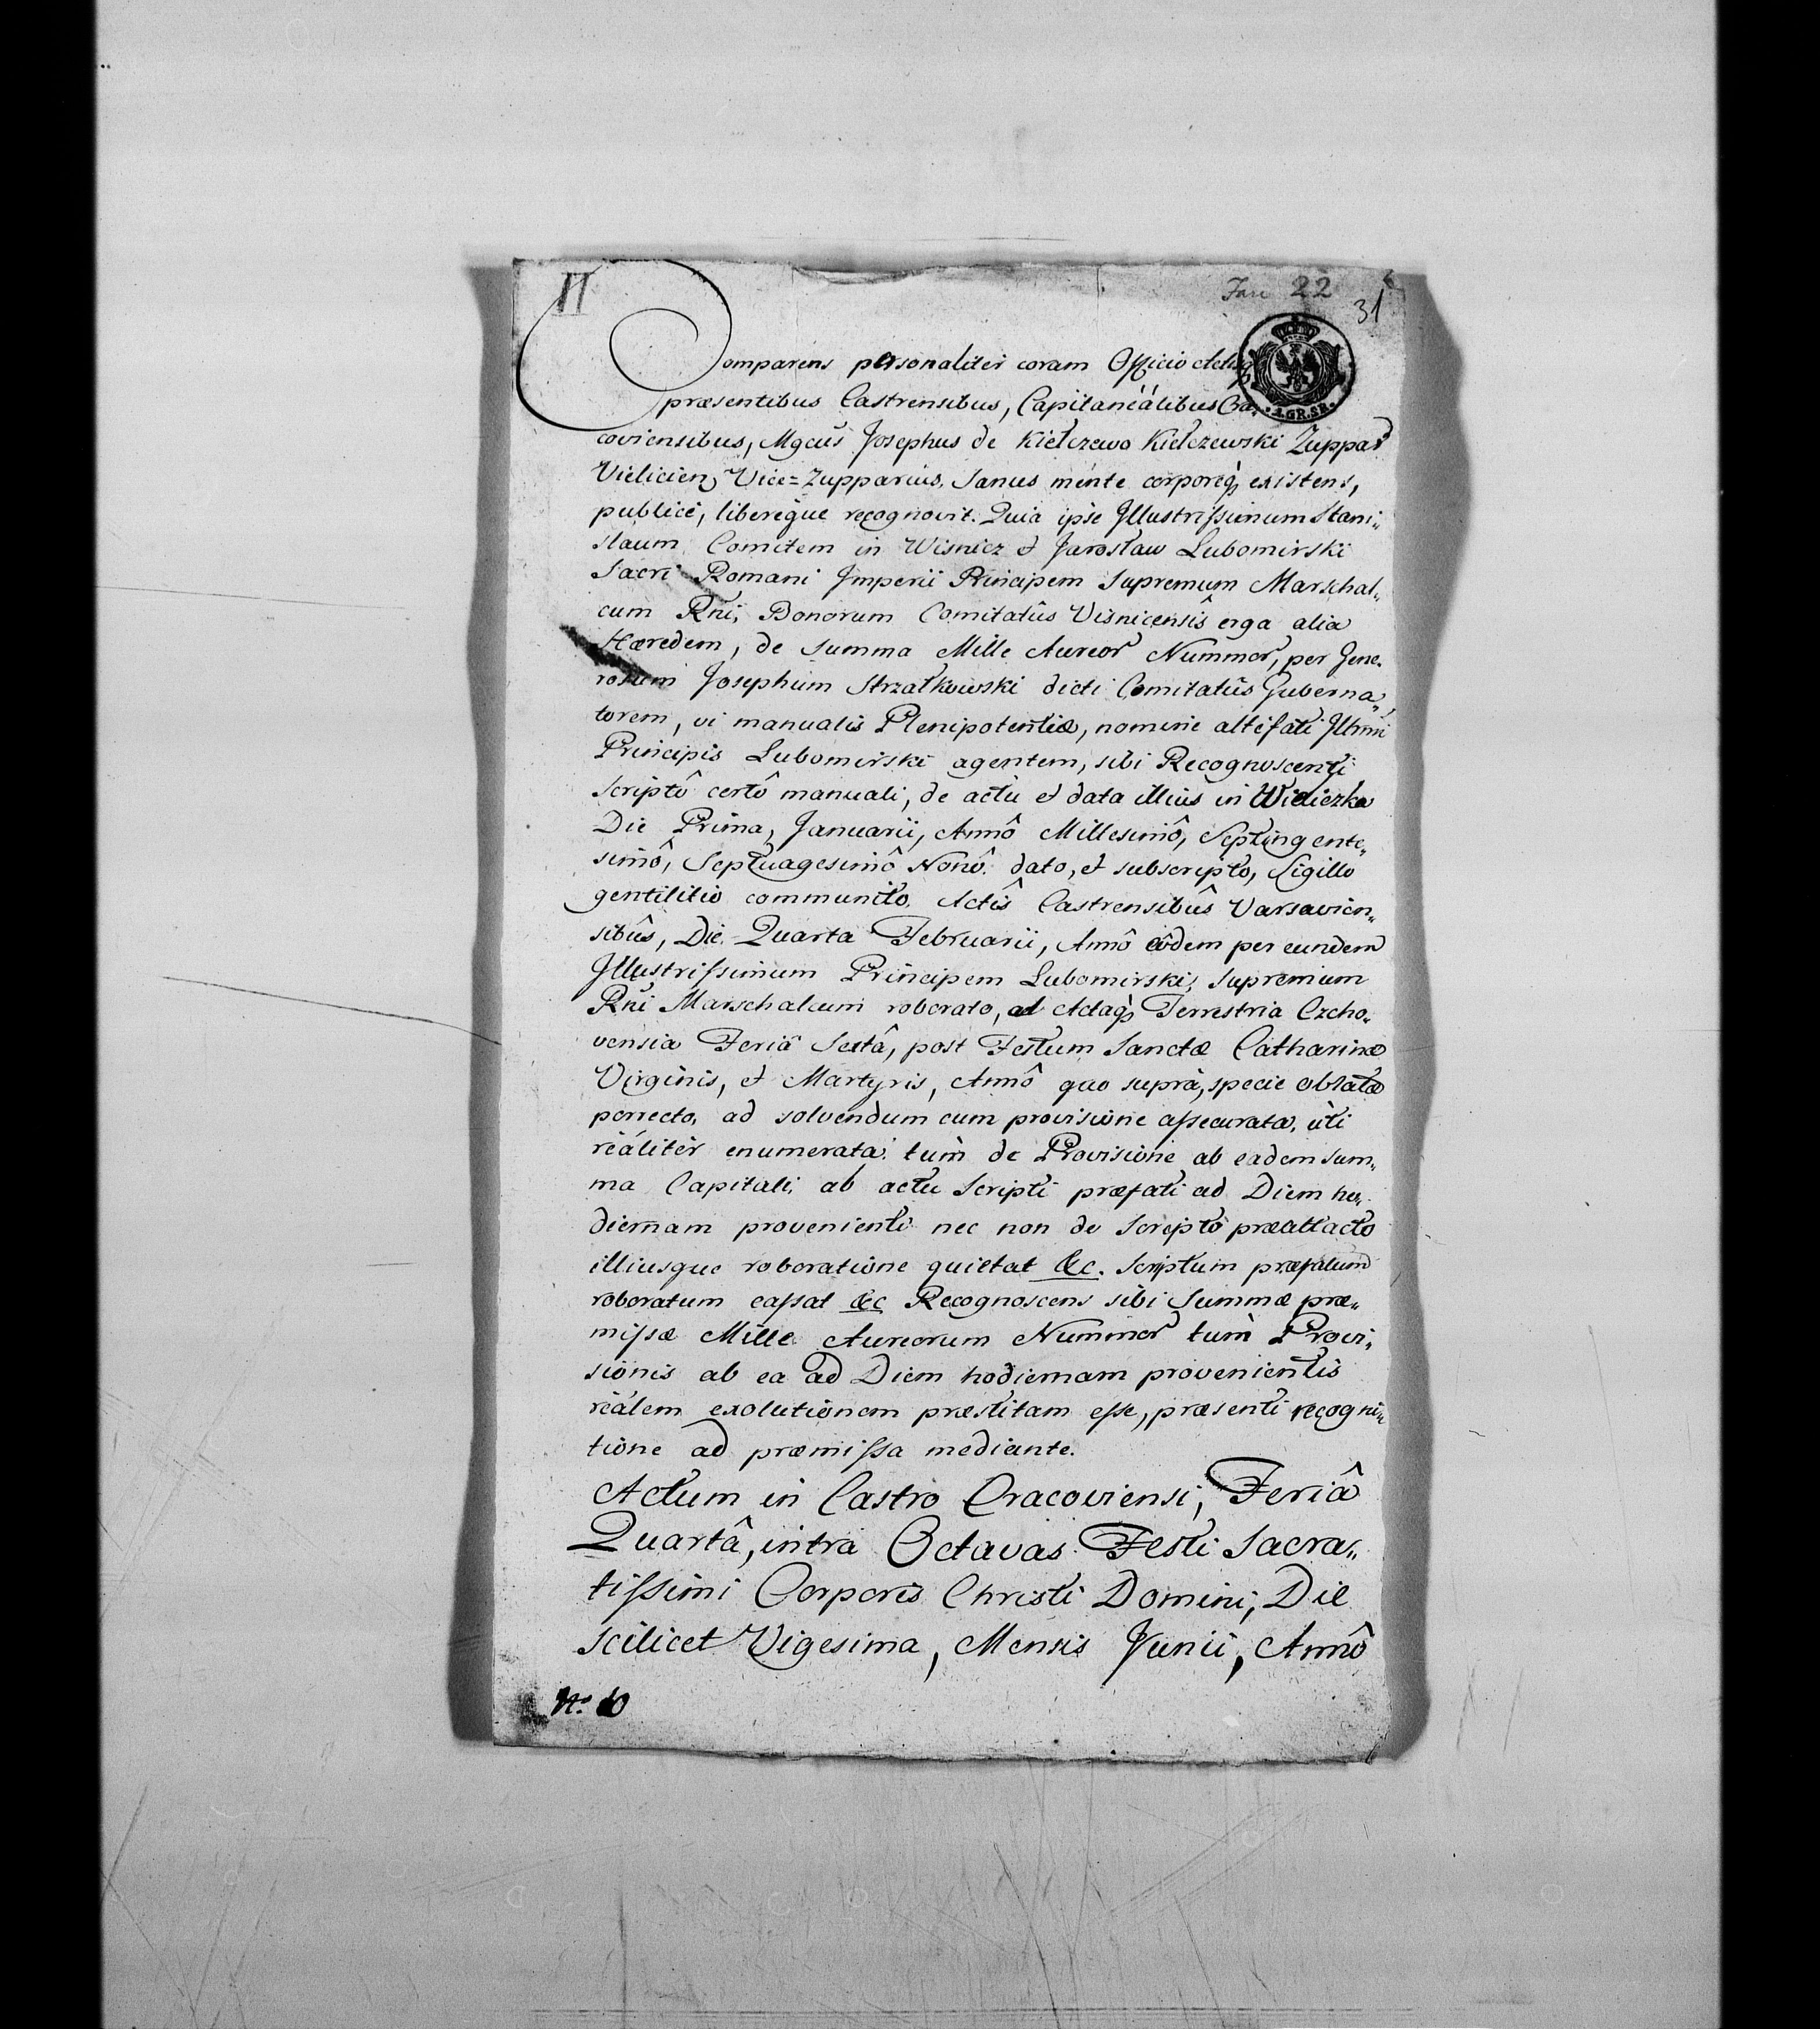 II
Fasc 22
31
1.GR.SR.
Comparens personaliter coram Officio Actisq;
præsentibus Castrensibus, Capitaneálibus Cra„
coviensibus, Mgcus Josephus de Kiełczewo Kiełczewski Zuppar
Vielicien, Vice=Zupparius, Sanus mente corporeq; existens,
publicè, liberèque recognovit. Quia ipse Jllustrissimum Stani„
slaum Comitem in Wisnicz et Jarosław Lubomirski
Sacri Romani Jmperii Principem Supremum Marschal„
cum Rñi, Bonorum Comitatûs Visnicensis erga alia
Hæredem, de Summa Mille Aureor Nummor, per Gene„
rosum Josephum Strzałkowski dicti Comitatûs Guberna„
torem, vi manualis Plenipotentiæ, nomine altefati Jllmi
Principis Lubomirski agentem, sibi Recognoscenti
Scriptô certô manuali, de actu et data illius in Wieliczka
Die Prima, Januarii, Annô Millesimô, Septingente„
simô, Septuagesimô Nonô. dato, et subscripto, Sigillo
gentilitio communito. Actîs Castrensibûs Varsavien„
sibûs, Die Quarta Februarii, Annô eôdem per eundem
Jllustrissimum Principem Lubomirski, Supremum
Rñi Marschalcum roborato, ad Actaq; Terrestria Czcho„
vensia Feriâ Sextâ, post Festum Sanctæ Catharinæ
Virginis, et Martyris, Annô quo suprà, specie oblatæ
porrecto, ad solvendum cum provisione assecurata, uti
reáliter enumerata. tum de Provisione ab eadem Sum„
ma Capitali, ab actu Scripti præfati ad Diem ho„
diernam provenienti nec non de Scripto præattacto
illiusque roboratione quietat &c. Scriptum præfatum
roboratum cassat &c Recognoscens sibi Summæ præ„
missæ Mille Aureorum Nummor tum Provi„
sionis ab ea ad Diem hodiernam provenientis
reálem exolutionem præstitam esse, præsenti recogni„
tione ad præmissa mediante.
Actum in Castro Cracoviensi, Feriâ
Quartâ, intra Octavas Festi Sacra„
tissimi Corporis Christi Domini, Die
scilicet Vigesima, Mensis Junii, Annô
No. 10